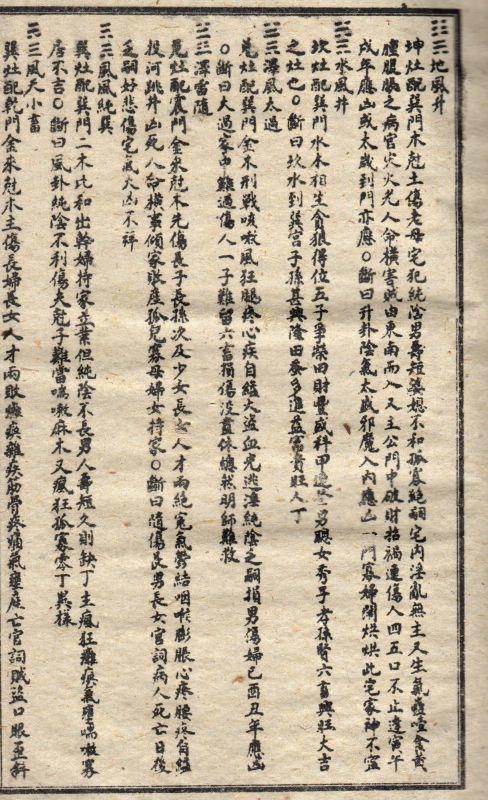 ☷☴地風升
坤灶配巽門木尅土傷老母宅犯純陰男壽短婆媳不和孤寡絕嗣宅內淫亂無主又生氣癆噎食黃
腫腹脹之病官災火光人命橫害賊由東南而入又主公門中破財招禍連傷人四五口不止逢寅午
戌年應凶或太歲到門亦應○斷曰升卦陰氣太盛邪魔入內應凶一門寡婦鬧烘烘此宅家神不宜
☵☴水風井
坎灶配巽門水木相生貪狼得位五子爭榮田財豐盛科甲連登男聰女秀子孝孫賢六畜興旺大吉
之灶也○斷曰坎水到巽宮子孫甚興隆田蚕多進益富貴旺人丁
☱☴澤風大過
兌灶配巽門金木刑戰咳嗽風狂腿疼心疾自縊火盜血光逃淫純陰乏嗣損男傷婦巳酉丑年應凶
○斷曰大過家中難過傷人一子難留六畜損傷沒置休總然明師難救
☱☳澤雷隨
兌灶配震門金來尅木先傷長子長孫次及少女長女人才兩絕冤氣鬱結咽喉膨脹心疼腰疼自縊
投河跳井凶死人命橫事傾家敗產孤兒寡母婦女持家○斷曰隨傷長男長女官詞病人死亡日後
乏嗣好悲傷宅氣大凶不祥
☴☴風風純巽
巽灶配巽門二木比和出幹婦持家立業但純陰不長男人壽短久則缺丁主瘋狂癱瘓氣壅喘嗽寡
居不吉○斷曰風卦純陰不利傷夫尅子難當喘嗽麻木又瘋狂孤寡零丁異樣
☴☰風天小畜
巽灶配乾門金來尅木主傷長婦長女人才兩敗癱瘓雜疾筋骨疼痛氣壅產亡官詞賊盜口眼歪斜